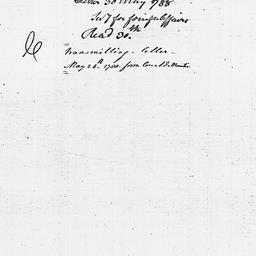 Letter 30 May 1788
Secy for foreign Affairs
Read 30.th
transmitting letter
May 28th 1788 from Count de Moustier